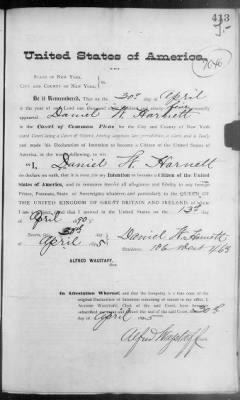 413
United States of America.
STATE OF NEW YORK,
CITY AND COUNTY OF NEW YORK,
Be it Remembered, That on the 30th day of April
in the year of our Lord one thousand
appeared Daniel W. Harnett
in the Court of Common Pleas for the City and County of New York
and made his Declaration of Intention to become a Citizen of the United States of
America, in the words following, to wit:
"I, Daniel W. Harnett
do declare on oath, that it is my Intention to become a Citizen of the United
States of America, and to renounce forever all allegiance and fidelity to any foreign
Prince, Potentate, State or Sovereignty whatever, and particularly to the QUEEN OF
THE UNITED KINGDOM OF GREAT BRITAIN AND IRELAND, of whom
I am a subject, and that I arrived in the United States on the 13th day
of April
Sworn, this 30th day
of April
Daniel W. Harnett
ALFRED WAGSTAFF,
Residence,
In Attestation Whereof, and that the foregoing is a true copy of the
original Declaration of Intention remaining of record in my office, I
ALFRED WAGSTAFF, Clerk of the said Court, have hereunto
subscribed my name and affixed the seal of the said Court, this 30th
day of April
Alfred Wagstaff